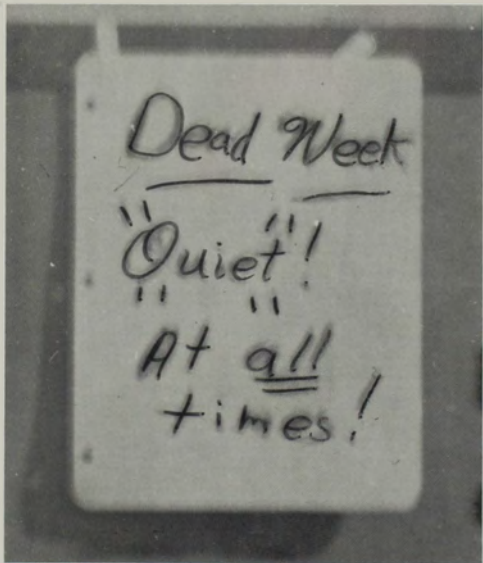 Dead Week
"Quiet"!
At all
times!